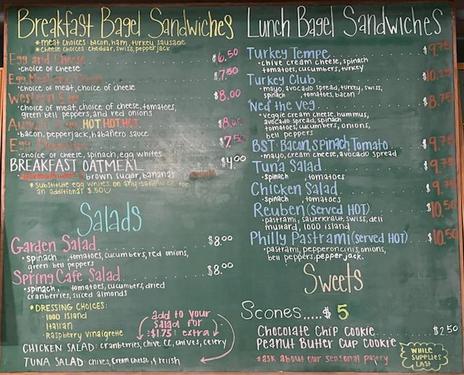 Breakfast Bagel Sandwiches
*meat choices: bacon, ham, turkey sausage
*cheese choices: cheddar, swiss, pepper jack
Egg and Cheese $6.50
•choice of cheese
Egg $7.50
•choice of meat, choice of cheese
Western $8.00
•choice of meat, choice of cheese, tomatoes,
green bell peppers, and red onions
HOT HOT HOT
•bacon, pepperjack, habanero sauce
Egg
•choice of cheese, spinach, egg whites
BREAKFAST OATMEAL $4.00
brown sugar, bananas
*substitute egg whites on any sandwich for
an additional $.50
Salads
Garden Salad $8.00
•spinach, tomatoes, cucumbers, red onions,
green bell peppers
Spring Cafe Salad $8.00
•spinach, tomatoes, cucumbers, dried
cranberries, sliced almonds
*DRESSING CHOICES:
1000 island
Italian
Raspberry vinaigrette
add to your
salad for
$1.75 extra
CHICKEN SALAD: cranberries, chive cc, chives, celery
TUNA SALAD: chives, cream cheese, relish
Lunch Bagel Sandwiches
Turkey Tempe
•chive cream cheese, spinach
tomatoes, cucumbers, turkey
Turkey Club
•mayo, avocado spread, turkey, swiss,
spinach, tomatoes, bacon
Ned the veg
•veggie cream cheese, hummus,
avocado spread, spinach
tomatoes, cucumbers, onions,
bell peppers
BST: Bacon, Spinach, Tomato
•mayo, cream cheese, avocado spread
Tuna Salad
•spinach, tomatoes
Chicken Salad
•spinach, tomatoes
Reuben (served HOT) $10.50
•pastrami, sauerkraut, swiss, deli
mustard, 1000 island
Philly Pastrami (served HOT) $10.50
•pastrami, pepperoncinis, onions,
bell peppers, pepper jack
Sweets
Scones.....$5
Chocolate Chip Cookie $2.50
Peanut Butter Cup Cookie
*ask about our seasonal pastry
WHILE
SUPPLIES
LAST